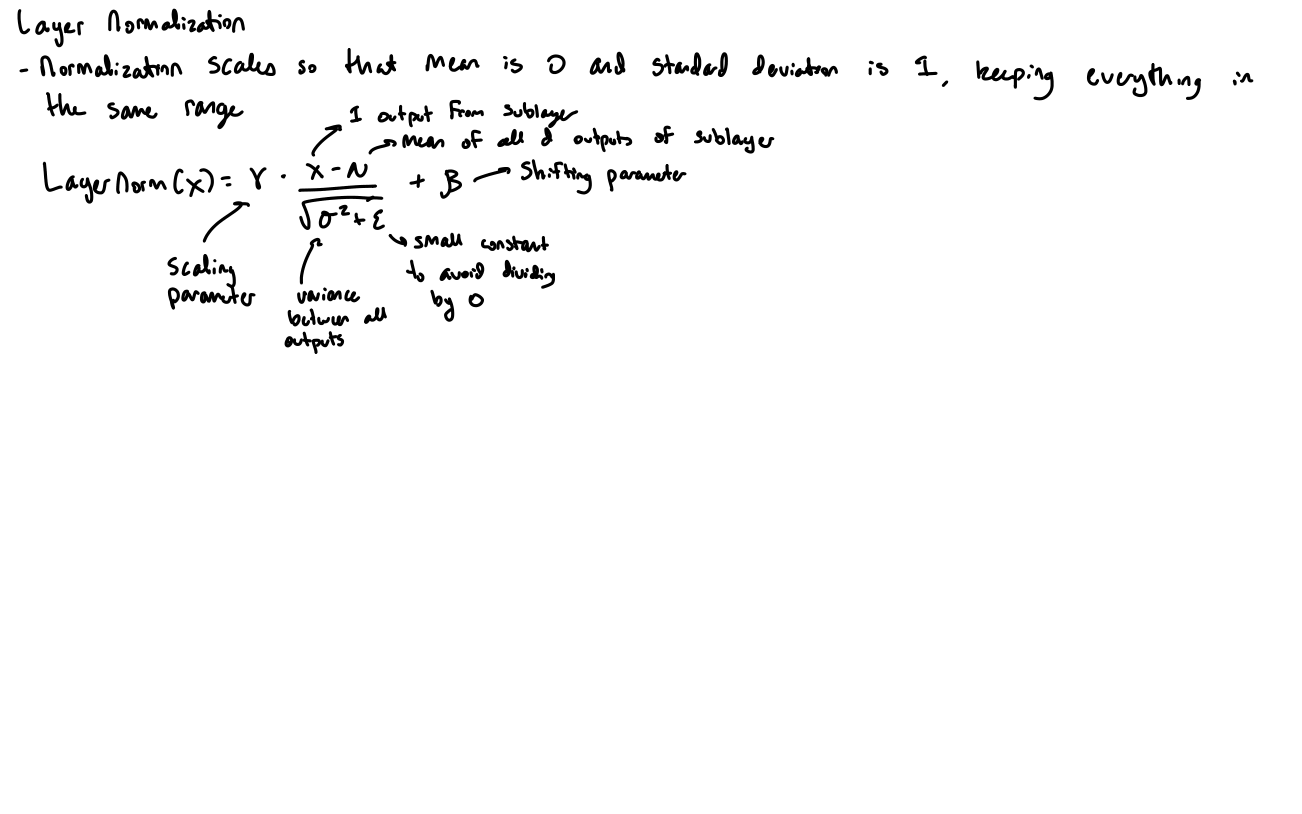 Layer Normalization
- Normalization scales so that mean is 0 and standard deviation is 1, keeping everything in
the same range
1 output from sublayer
mean of all d outputs of sublayer
LayerNorm(x) = γ · (x - μ) / √(σ² + ε) + β
shifting parameter
scaling
parameter
variance
between all
outputs
small constant
to avoid dividing
by 0